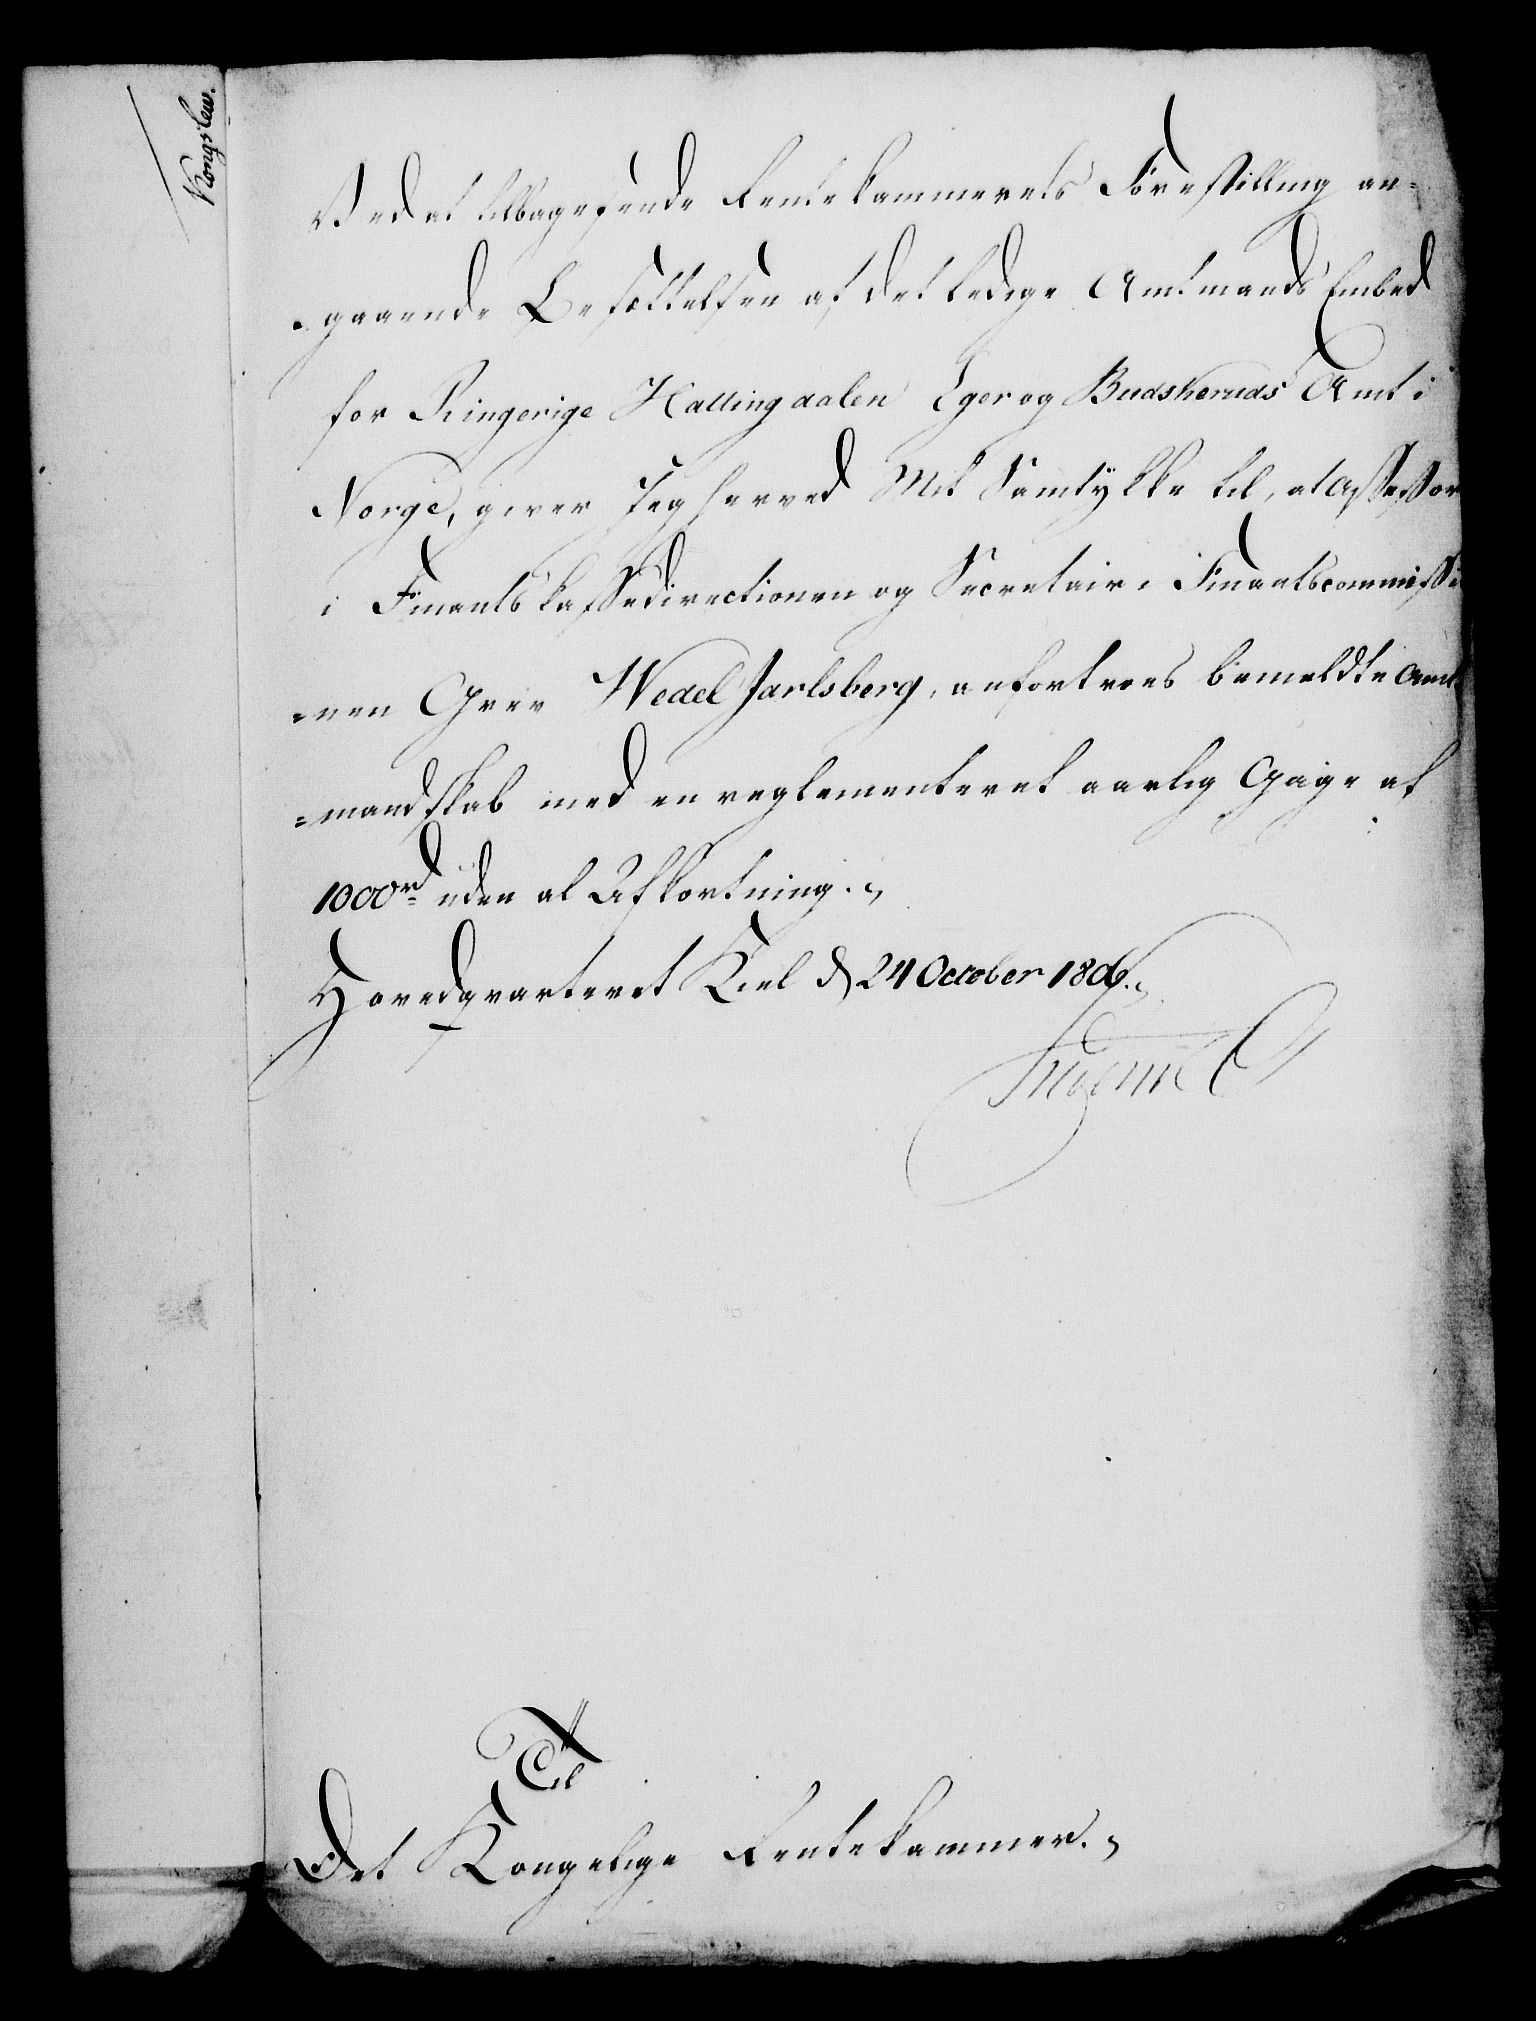 Kongslew.
Ved at tilbagesende Rentekammerets Forestilling an-
-gaaende Besættelsen af det ledige Amtmands Embed
for Ringerige Hallingdalen Eger og Budskeruds Amt i
Norge, giver Jeg herved Mit Samtykke til, at Assessor
i Finantskassedirectionen og Secretair i Finantscommissi
=onen Grev Wedel Jarlsberg, anfortroes bemeldte Amt
=mandskab med en reglementeret aarlig Gage af
1000 rd uden al Afkortning.
Hovedqvarteret Kiel d 24 October 1806.
Friderich
Til
Det Kongelige Rentekammer.